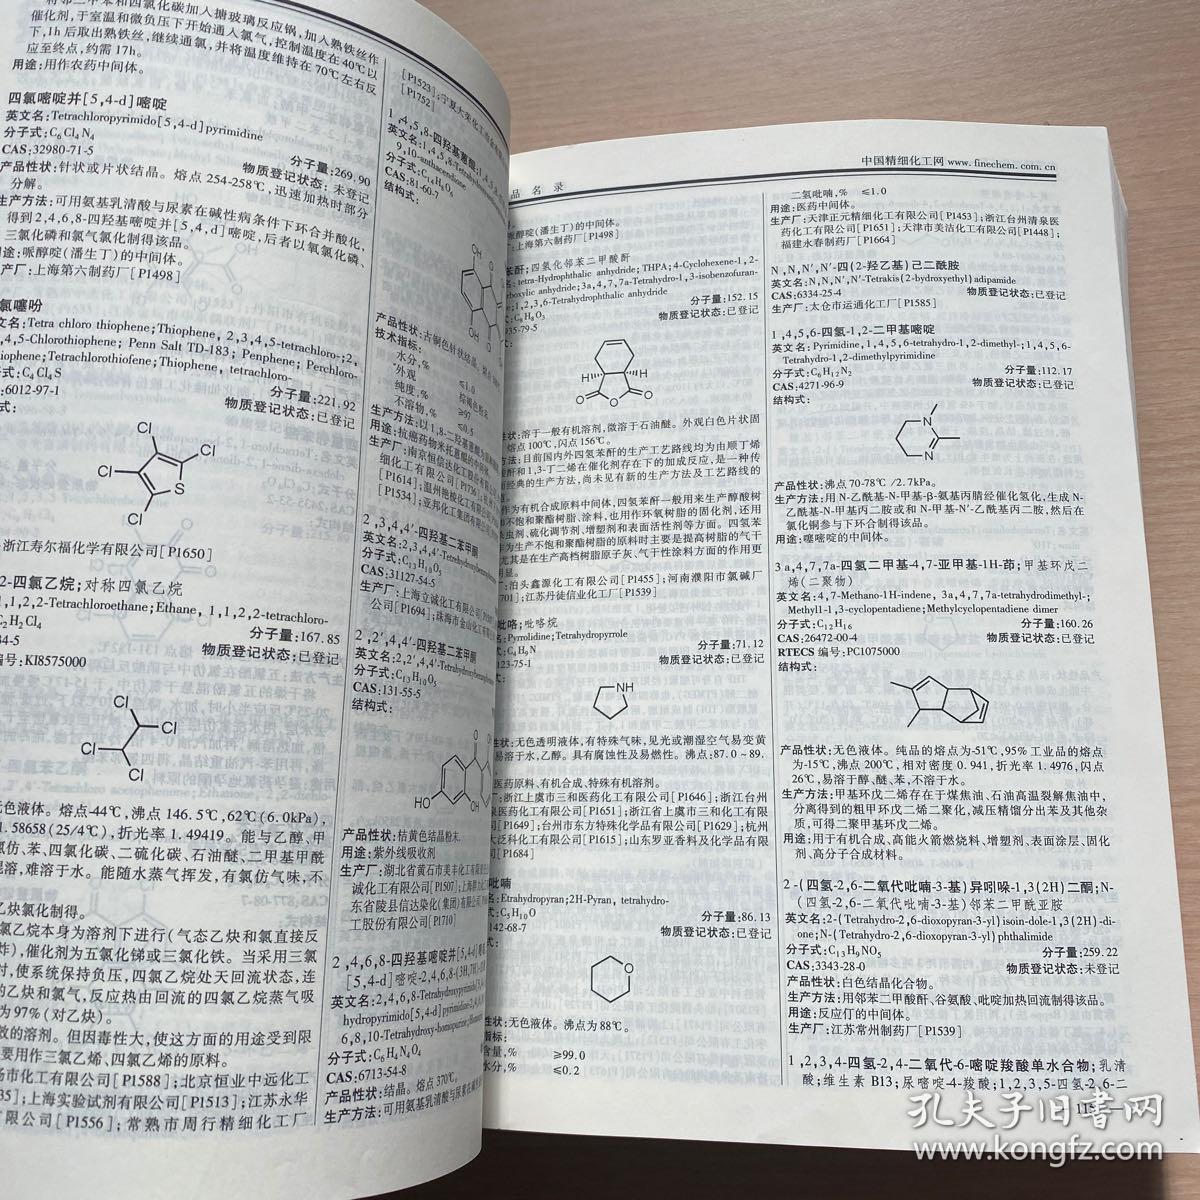 将邻二甲苯和四氯化碳加入搪玻璃反应锅,加入熟铁丝作
催化剂,于室温和微负压下开始通入氯气,控制温度在40℃以
下,1h后取出熟铁丝,继续通氯,并将温度维持在70℃左右反
应至终点,约需17h。
用途:用作农药中间体。
四氯嘧啶并[5,4-d]嘧啶
英文名:Tetrachloropyrimido[5,4-d]pyrimidine
分子式:C6Cl4N4
分子量:269.90
CAS:32980-71-5
物质登记状态:未登记
产品性状:针状或片状结晶。熔点254-258℃,迅速加热时部分
分解。
生产方法:可用氨基乳清酸与尿素在碱性病条件下环合并酸化,
得到2,4,6,8-四羟基嘧啶并[5,4,d]嘧啶,后者以氧氯化磷、
三氯化磷和氯气氯化制得该品。
用途:哌醇啶(潘生丁)的中间体。
产厂:上海第六制药厂[P1498]
氯噻吩
文名:Tetra chloro thiophene;Thiophene, 2,3,4,5-tetrachloro-;2,
,4,5-Chlorothiophene; Penn Salt TD-183; Penphene; Perchloro-
iophene;Tetrachlorothiofene;Thiophene, tetrachloro-
式:C4Cl4S
分子量:221.92
:6012-97-1
物质登记状态:已登记
式:
Cl
Cl
Cl
S
Cl
浙江寿尔福化学有限公司[P1650]
2-四氯乙烷;对称四氯乙烷
1,1,2,2-Tetrachloroethane;Ethane, 1,1,2,2-tetrachloro-
C2H2Cl4
分子量:167.85
34-5
物质登记状态:已登记
编号:KI8575000
Cl
Cl
Cl
Cl
无色液体。熔点-44℃,沸点146.5℃,62℃(6.0kPa),
1.58658(25/4℃),折光率1.49419。能与乙醇、甲
氯仿、苯、四氯化碳、二硫化碳、石油醚、二甲基甲酰
混溶,难溶于水。能随水蒸气挥发,有氯仿气味,不
乙炔氯化制得。
氯乙烷本身为溶剂下进行(气态乙炔和氯直接反
炸),催化剂为五氯化锑或三氯化铁。当采用三氯
时,使系统保持负压,四氯乙烷处天回流状态,连
的乙炔和氯气,反应热由回流的四氯乙烷蒸气吸
为97%(对乙炔)。
效的溶剂。但因毒性大,使这方面的用途受到限
要用作三氯乙烯、四氯乙烯的原料。
汤市化工有限公司[P1588];北京恒业中远化工
35];上海实验试剂有限公司[P1513];江苏永华
有限公司[P1556];常熟市周行精细化工厂
[P1523];宁夏大荣化工冶金有限
[P1752]
1,4,5,8-四羟基蒽醌;1,4,5,8
英文名:1,4,5,8-Tetrahydroxy
9,10-anthracenedione
分子式:C14H8O6
CAS:81-60-7
结构式:
OH
OH
产品性状:古铜色针状结晶。熔点
技术指标:
水分,% ≤1.0
外观 棕褐色粉末
纯度,% ≥97
不溶物,% ≤0.5
生产方法:以1,8-二羟基蒽醌为
用途:抗癌药物米托蒽醌的中间体。
生产厂:南京恒信达化工股份有限
细化工有限公司[P1736]
[P1614];温州艳棱化工有限
[P1534];亚邦化工集团有限公司
2,3,4,4′-四羟基二苯甲酮
英文名:2,3,4,4′-Tetrehydroxybenzophen
分子式:C13H10O5
CAS:31127-54-5
生产厂:上海立诚化工有限公司
公司[P1694];珠海市金山化工有
2,2′,4,4′-四羟基二苯甲酮
英文名:2,2′,4,4′-Tetrahydroxybenzophen
分子式:C13H10O5
CAS:131-55-5
结构式:
O
HO
OH
产品性状:桔黄色结晶粉末.
用途:紫外线吸收剂
生产厂:湖北省黄石市美丰化工有限
诚化工有限公司[P1507];上海
东省陵县信达染化(集团)有限公司
工股份有限公司[P1710]
2,4,6,8-四羟基嘧啶并[5,4-d]嘧啶
[5,4-d]嘧啶-2,4,6,8-(3H,7H)
英文名:2,4,6,8-Tetrahydroxypyrimido[5,4-
hydropyrimido[5,4-d]pyrimidine-2,4,6,8
6,8,10-Tetrahydroxy-homopurine;Homo
分子式:C6H4N4O4
CAS:6713-54-8
产品性状:结晶。熔点370℃。
生产方法:可用氨基乳清酸与尿素在碱性
品名录
中国精细化工网www.finechem.com.cn
哌醇啶(潘生丁)的中间体。
上海第六制药厂[P1498]
苯酐;四氢化邻苯二甲酸酐
tetra-Hydrophthalic anhydride;THPA;4-Cyclohexene-1,2-
arboxylic anhydride;3a,4,7,7a-Tetrahydro-1,3-isobenzofuran-
1,2,3,6-Tetrahydrophthalic anhydride
C8H8O3
分子量:152.15
935-79-5
物质登记状态:已登记
H
H
O
O
O
性状:溶于一般有机溶剂,微溶于石油醚。外观白色片状固
熔点100℃,闪点156℃。
方法:目前国内外四氢苯酐的生产工艺路线均为由顺丁烯
酸酐和1,3-丁二烯在催化剂存在下的加成反应,是一种传
而经典的生产方法,尚未见有新的生产方法及工艺路线的
作为有机合成原料中间体,四氢苯酐一般用来生产醇酸树
和不饱和聚酯树脂、涂料,也用作环氧树脂的固化剂,还用
杀虫剂、硫化调节剂、增塑剂和表面活性剂等方面。四氢苯
为生产不饱和聚酯树脂的原料时主要是提高树脂的气干
尤其是在生产高档树脂原子灰、气干性涂料方面的作用更
明显。
:泊头鑫源化工有限公司[P1455];河南濮阳市氯碱厂
701];江苏丹徒信业化工厂[P1539]
吡咯;吡咯烷
:Pyrrolidine;Tetrahydropyrrole
C4H9N
分子量:71.12
123-75-1
物质登记状态:已登记
式:
NH
性状:无色透明液体,有特殊气味,见光或潮湿空气易变黄
易溶于水,乙醇。具有腐蚀性及易燃性。沸点:87.0~89.
医药原料、有机合成、特殊有机溶剂。
:浙江上虞市三和医药化工有限公司[P1646];浙江台州
泉医药化工有限公司[P1651];浙江省上虞市三和化工有限
[P1649];台州市东方特殊化学品有限公司[P1629];杭州
大泛科化工有限公司[P1615];山东罗亚香料及化学品有限
[P1684]
吡喃
:Etrahydropyran;2H-Pyran, tetrahydro-
C5H10O
分子量:86.13
142-68-7
物质登记状态:已登记
式:
O
性状:无色液体。沸点为88℃。
指标:
含量,% ≥99.0
水分,% ≤0.2
二氢吡喃,% ≤1.0
用途:医药中间体。
生产厂:天津正元精细化工有限公司[P1453];浙江台州清泉医
药化工有限公司[P1651];天津市美洁化工有限公司[P1448];
福建水春制药厂[P1664]
N,N,N′,N′-四(2-羟乙基)己二酰胺
英文名:N,N,N′,N′-Tetrakis(2-hydroxyethyl)adipamide
CAS:6334-25-4
物质登记状态:已登记
生产厂:太仓市运通化工厂[P1585]
1,4,5,6-四氢-1,2-二甲基嘧啶
英文名:Pyrimidine,1,4,5,6-tetrahydro-1,2-dimethyl-;1,4,5,6-
Tetrahydro-1,2-dimethylpyrimidine
分子式:C6H12N2
分子量:112.17
CAS:4271-96-9
物质登记状态:已登记
结构式:
N
N
产品性状:沸点70-78℃/2.7kPa。
生产方法:用N-乙酰基-N-甲基-β-氨基丙腈经催化氢化,生成N-
乙酰基-N-甲基丙二胺或和N-甲基-N′-乙酰基丙二胺,然后在
氯化铜参与下环合制得该品。
用途:噻嘧啶的中间体。
3a,4,7,7a-四氢二甲基-4,7-亚甲基-1H-茚;甲基环戊二
烯(二聚物)
英文名:4,7-Methano-1H-indene, 3a,4,7,7a-tetrahydrodimethyl-;
Methyl1-1,3-cyclopentadiene;Methylcyclopentadiene dimer
分子式:C12H16
分子量:160.26
CAS:26472-00-4
物质登记状态:已登记
RTECS编号:PC1075000
结构式:
产品性状:无色液体。纯品的熔点为-51℃,95%工业品的熔点
为-15℃,沸点200℃,相对密度0.941,折光率1.4976,闪点
26℃,易溶于醇、醚、苯,不溶于水。
生产方法:甲基环戊二烯存在于煤焦油、石油高温裂解焦油中,
分离得到的粗甲环戊二烯二聚化,减压精馏分出苯及其他杂
质,可得二聚甲基环戊二烯。
用途:用于有机合成、高能火箭燃烧料、增塑剂、表面涂层、固化
剂、高分子合成材料。
2-(四氢-2,6-二氧代吡喃-3-基)异吲哚-1,3(2H)二酮;N-
(四氢-2,6-二氧代吡喃-3-基)邻苯二甲酰亚胺
英文名:2-(Tetrahydro-2,6-dioxopyran-3-yl)isoin-dole-1,3(2H)-di-
one;N-(Tetrahydro-2,6-dioxopyran-3-yl)phthalimide
分子式:C13H9NO5
分子量:259.22
CAS:3343-28-0
物质登记状态:未登记
产品性状:白色结晶化合物。
生产方法:用邻苯二甲酸酐、谷氨酸、吡啶加热回流制得该品。
用途:反应仃的中间体。
生产厂:江苏常州制药厂[P1539]
1,2,3,4-四氢-2,4-二氧代-6-嘧啶羧酸单水合物;乳清
酸;维生素B13;尿嘧啶-4-羧酸;1,2,3,5-四氢-2,6-二
孔夫子旧书网
www.kongfz.com